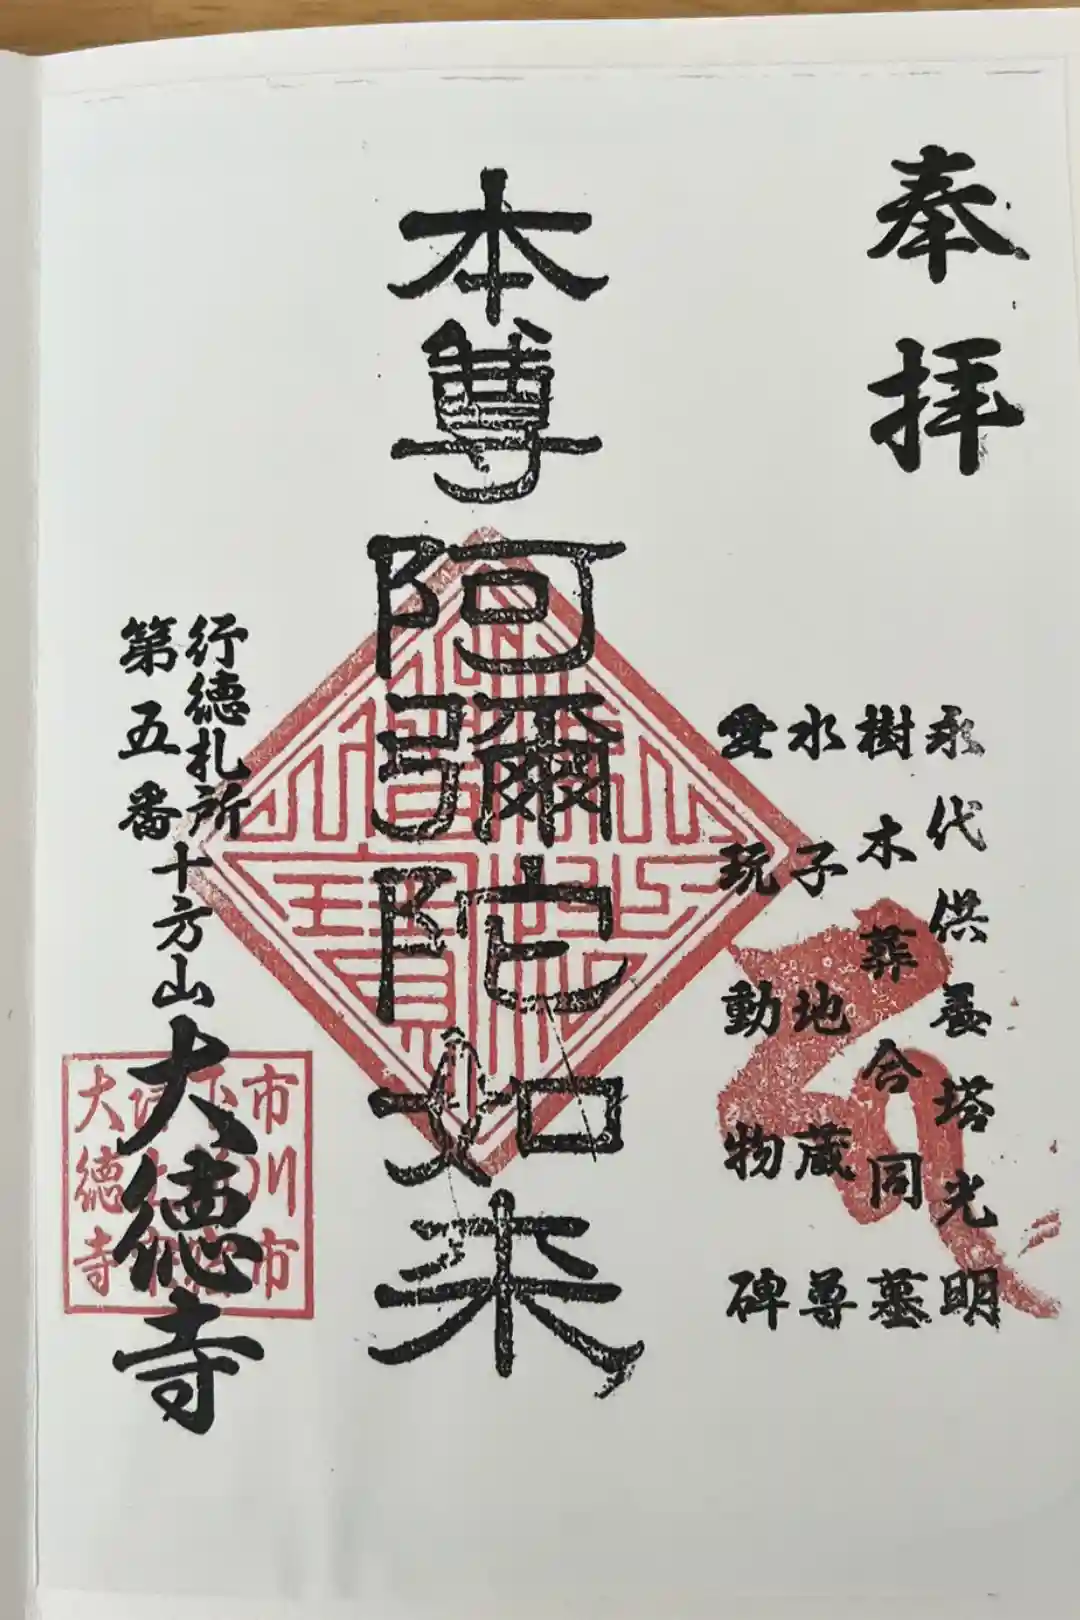 奉拝
永代供養塔光明
樹木葬合同墓
水子地蔵尊
愛玩動物碑
本尊阿彌陀如来
行徳札所
第五番
十方山大徳寺
市川市
大徳寺